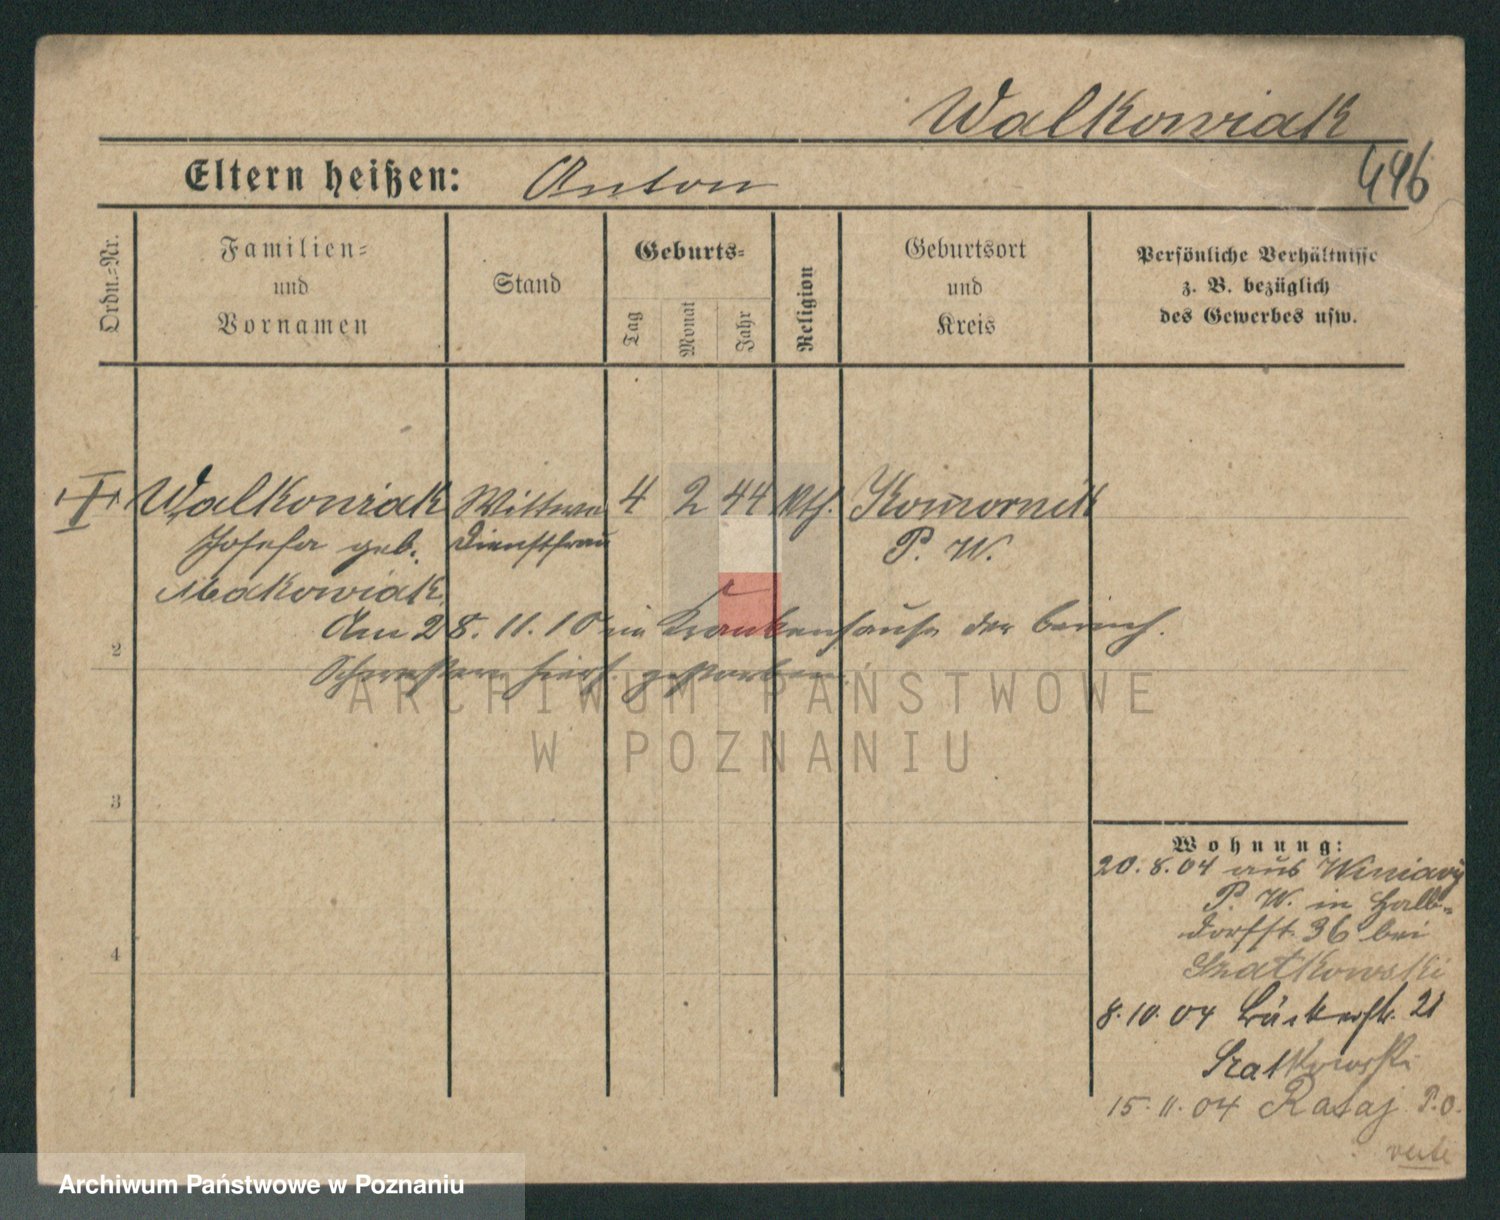 Walkowiak
496
Eltern heißen: Anton
Ordn.=Nr.
Familien=
und
Vornamen
Stand
Geburts=
Tag
Monat
Jahr
Religion
Geburtsort
und
Kreis
Persönliche Verhältnisse
z. B. bezüglich
des Gewerbes usw.
Walkowiak Wittwe 4 2 44 kth. Komornik
Josefa geb. Dienstfrau P. W.
Makowiak
Am 28.11.10 im Krankenhause der barmh.
2
Schwestern hier gestorben
ARCHIWUM PAŃSTWOWE
W POZNANIU
3
4
Wohnung:
20.8.04 aus Winiary
P. W. in Halb-
dorfst. 36 bei
Szatkowski
8.10.04 Bäckerstr. 21
Szatkowski
15.11.04 Rataj P.O.
Archiwum Państwowe w Poznaniu